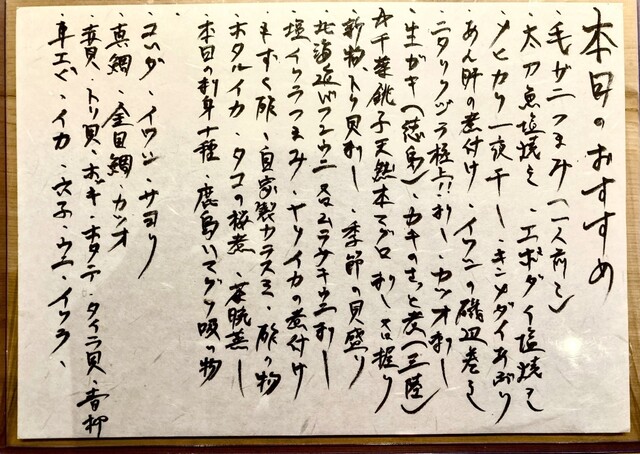 本日のおすすめ
・毛ガニつまみ(一人前〆)
・太刀魚塩焼き ・エボダイ塩焼き
・メヒカリ一夜干し ・キンメダイあぶり
・あん肝の煮付け ・イワシの磯辺巻き
・ニタリクジラ極上!!刺し ・カツオ刺し
・生ガキ(徳島) ・カキのさっと煮(三陸)
・千葉銚子天然本マグロ刺し 又は握り
・新物トリ貝刺し ・季節の貝盛り
・北海道バフンウニ 又はムラサキウニ刺し
・塩イクラつまみ ・ヤリイカの煮付け
・もずく酢 ・自家製カラスミ ・酢の物
・ホタルイカ ・タコの桜煮 ・茶碗蒸し
・本日の刺身十種 ・鹿島ハマグリ吸の物
・コハダ ・イワシ ・サヨリ
・真鯛 ・金目鯛 ・カツオ
・赤貝 ・トリ貝 ・ホッキ ・ホタテ ・タイラ貝 ・青柳
・車エビ ・イカ ・穴子 ・ウニ ・イクラ ・